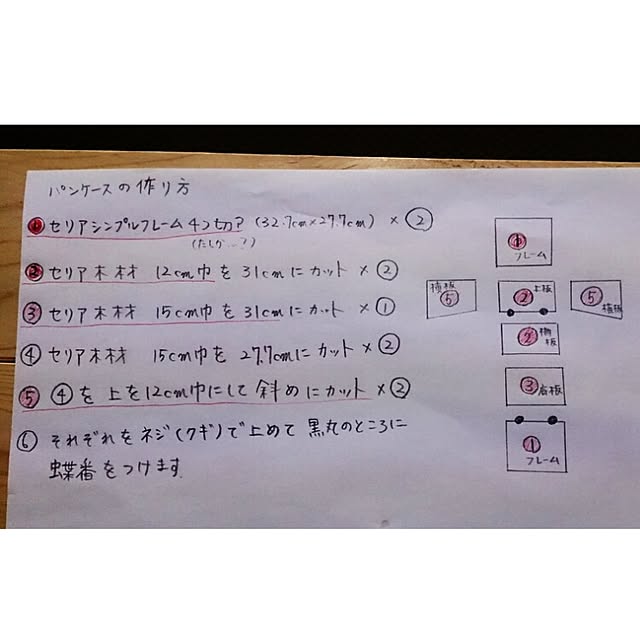 パンケースの作り方
① セリアシンプルフレーム 4つ切? (32.7cm×27.7cm) × ②
(たしか…?)
② セリア木材 12cm巾を 31cmにカット × ②
③ セリア木材 15cm巾を31cmにカット × ①
④ セリア木材 15cm巾を 27.7cmにカット × ②
⑤ ④を 上を12cm巾にして 斜めにカット × ②
⑥ それぞれをネジ(クギ)で止めて 黒丸のところに
蝶番をつけます
① フレーム
横板 ⑤
② 上板
⑤ 横板
② 棚板
③ 底板
① フレーム